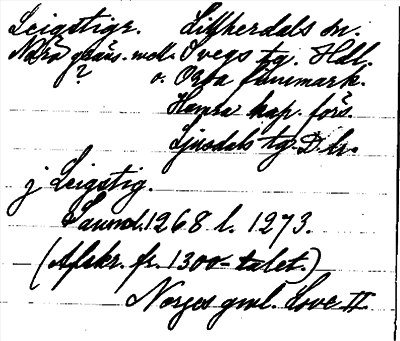 Leigstigr. Lillherdals sn.
Nära gräns. mell. Svegs tg. Hdl.
? o. Orsa finnmark.
Hamra kap. förs.
Ljusdals tg. D. hr.
j Leigstig.
Saml. 1268 l. 1273.
(Afskr. fr. 1300-talet.)
Norges gml. Love II.